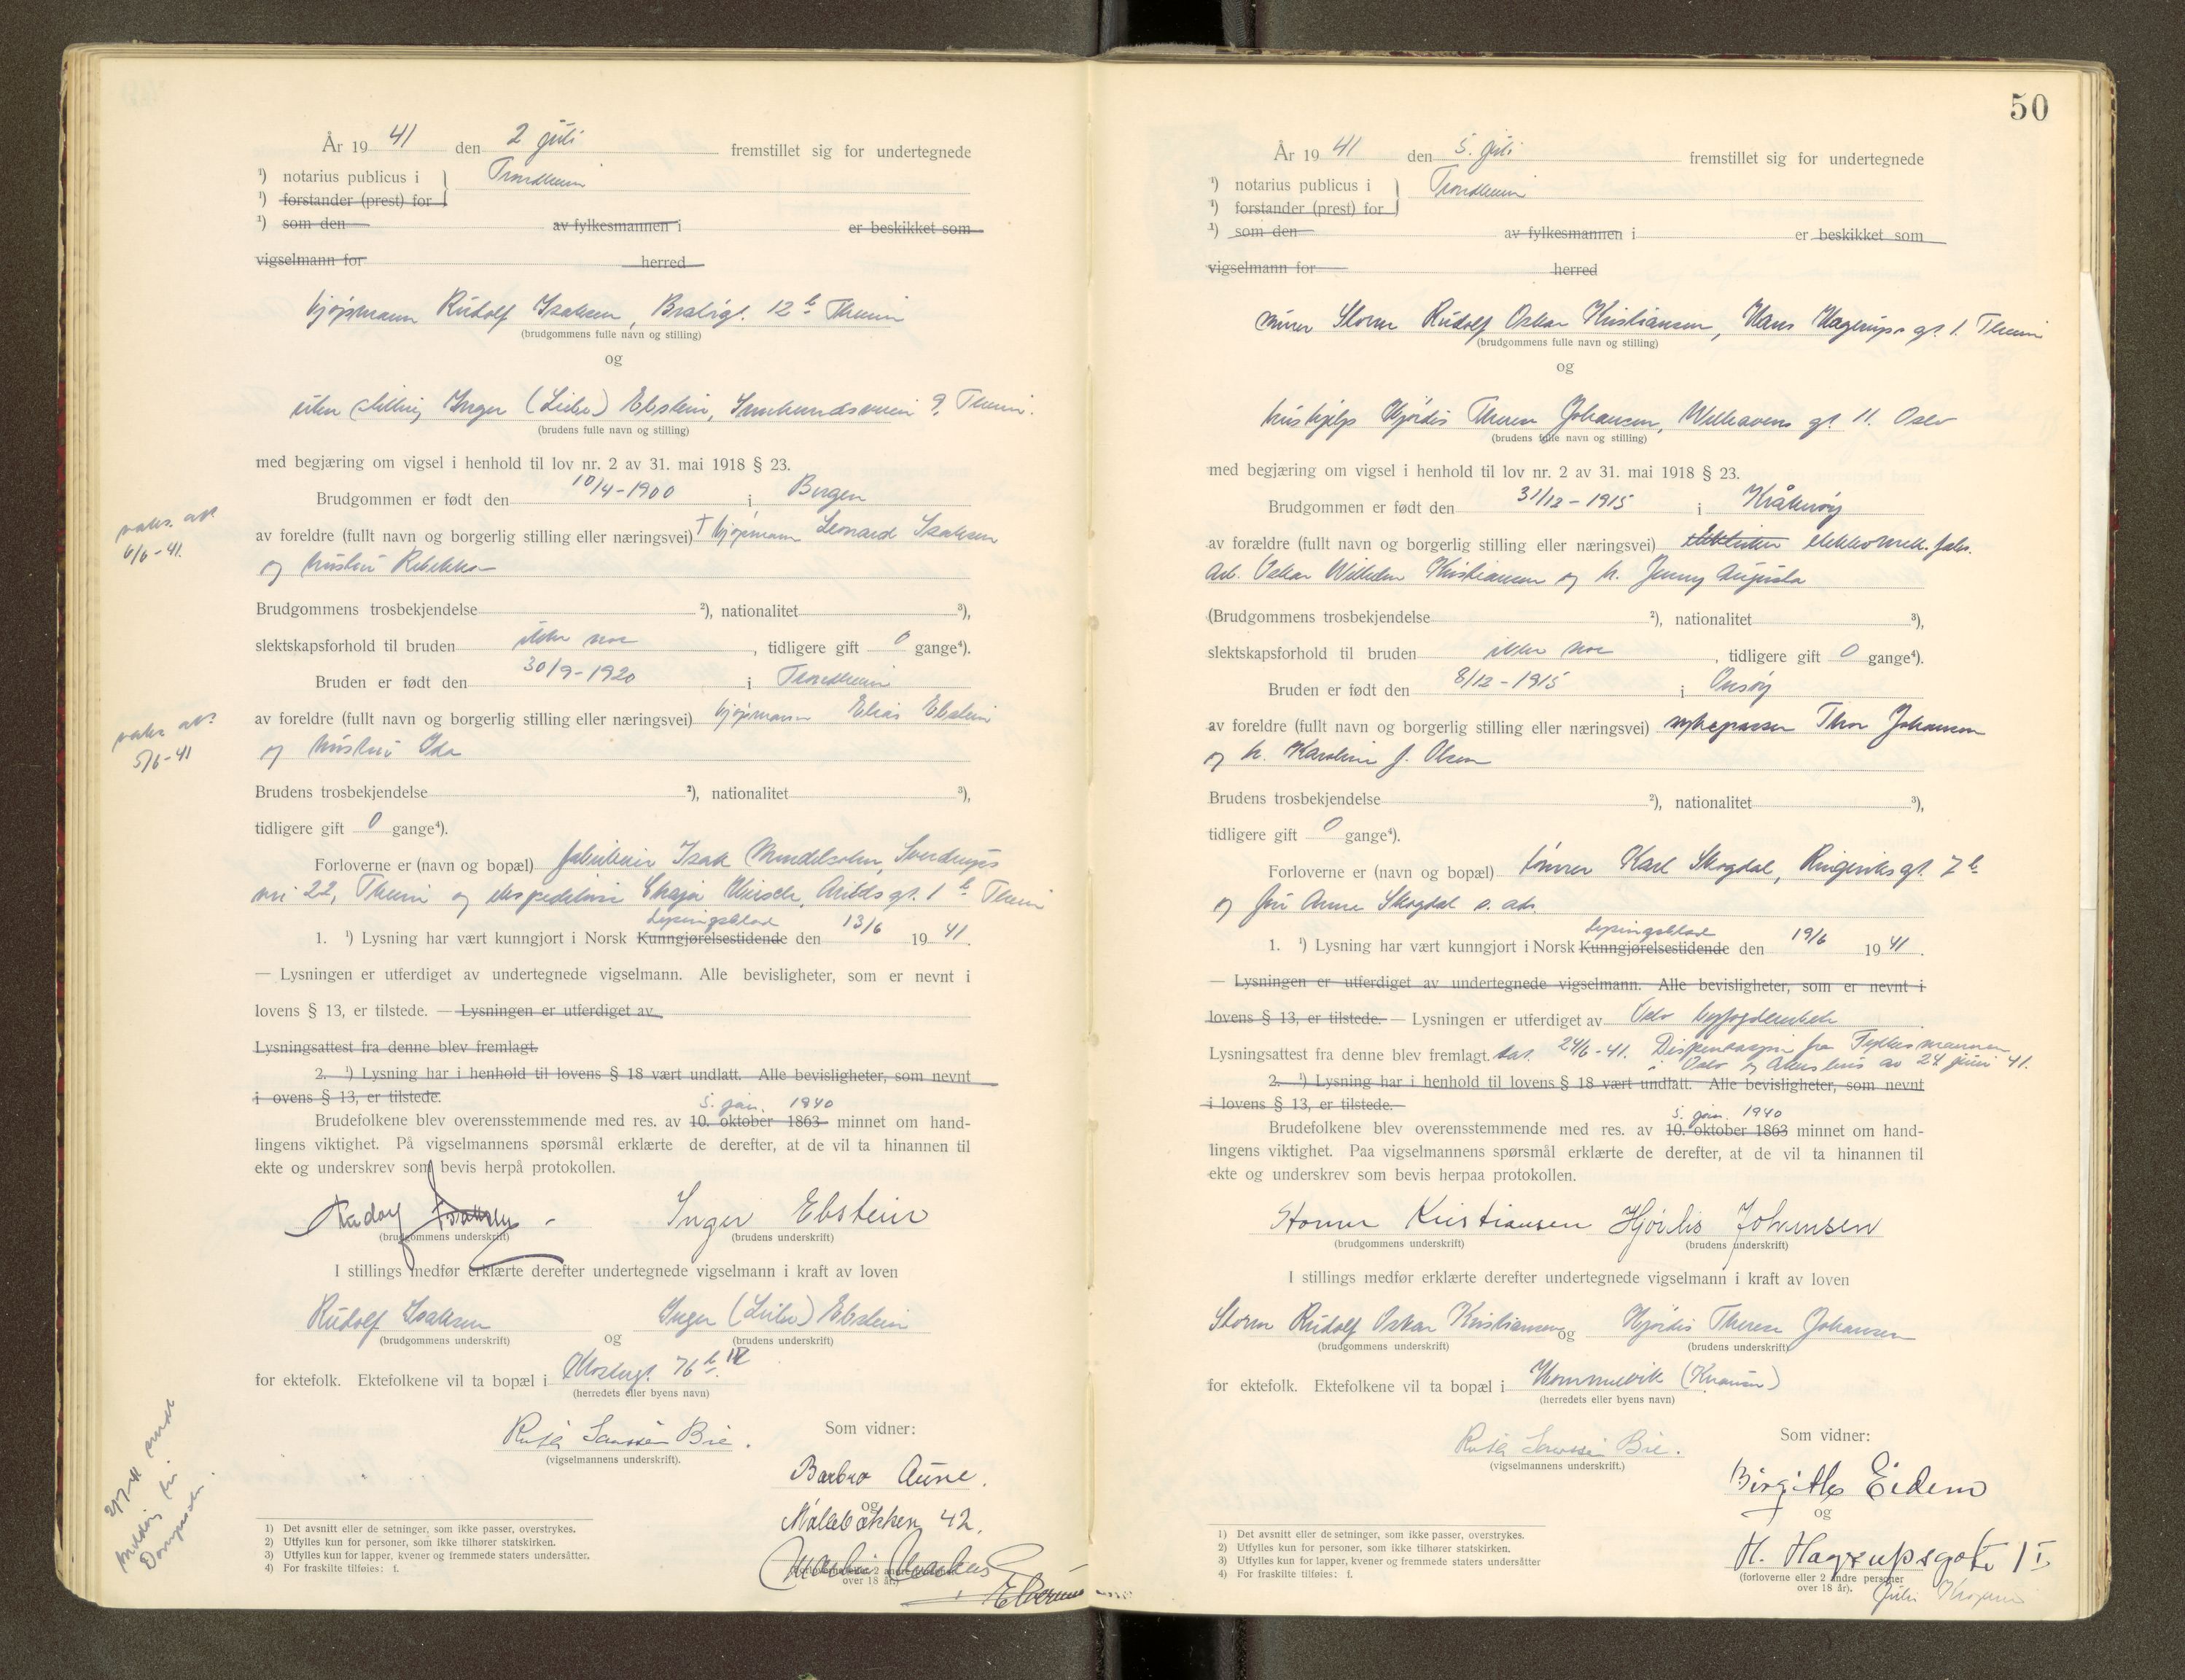 År 19 41 den 2 juli fremstillet sig for undertegnede
¹) notarius publicus i Trondheim
¹) forstander (prest) for
¹) som den av fylkesmannen i er beskikket som
vigselmann for herred
kjøpmann Rudolf Isaksen, Bratsbgt. 12 b Theim
(brudgommens fulle navn og stilling)
og
uten stilling Inger (Liebe) Ebstein, Innherredsveien 9, Theim.
(brudens fulle navn og stilling)
med begjæring om vigsel i henhold til lov nr. 2 av 31. mai 1918 § 23.
Brudgommen er født den 10/4-1900 i Bergen
vaks. att.
6/6-41.
av foreldre (fullt navn og borgerlig stilling eller næringsvei) † kjøpmann Leonard Isaksen
og hustru Rebekka
Brudgommens trosbekjendelse ²), nationalitet ³),
slektskapsforhold til bruden ikke noe, tidligere gift 0 gange⁴).
Bruden er født den 30/9-1920 i Trondheim
vaks. att.
5/6-41
av foreldre (fullt navn og borgerlig stilling eller næringsvei) kjøpmann Elias Ebstein
og hustru Ida
Brudens trosbekjendelse ²), nationalitet ³),
tidligere gift 0 gange⁴).
Forloverne er (navn og bopæl) fabrikeier Isak Mendelsohn, Sverdrups
vei 22, Theim og ekspeditrise Chaja Hirsch, Arildsgt. 1 b Theim
Lysingsblad
1. ¹) Lysning har vært kunngjort i Norsk Kunngjørelsestidende den 13/6 19 41.
— Lysningen er utferdiget av undertegnede vigselmann. Alle bevisligheter, som er nevnt i
lovens § 13, er tilstede. — Lysningen er utferdiget av
Lysningsattest fra denne blev fremlagt.
2. ¹) Lysning har i henhold til lovens § 18 vært undlatt. Alle bevisligheter, som nevnt
i ovens § 13, er tilstede.
5. jan. 1940
Brudefolkene blev overensstemmende med res. av 10. oktober 1863 minnet om hand-
lingens viktighet. På vigselmannens spørsmål erklærte de derefter, at de vil ta hinannen til
ekte og underskrev som bevis herpå protokollen.
Rudolf Isaksen Inger Ebstein
(brudgommens underskrift) (brudens underskrift)
I stillings medfør erklærte derefter undertegnede vigselmann i kraft av loven
Rudolf Isaksen og Inger (Liebe) Ebstein
(brudgommens underskrift) (brudens underskrift)
for ektefolk. Ektefolkene vil ta bopæl i 76 b IV
(herredets eller byens navn)
Som vidner:
(vigselmannens underskrift).
Barbro Aune.
og
Møllebakken 42.
2/7-41 sendt
melding til
1) Det avsnitt eller de setninger, som ikke passer, overstrykes.
2) Utfylles kun for personer, som ikke tilhører statskirken.
3) Utfylles kun for lapper, kvener og fremmede staters undersåtter.
4) For fraskilte tilføies: f.
over 18 år.)
50
År 19 41 den 5. juli fremstillet sig for undertegnede
¹) notarius publicus i Trondheim
¹) forstander (prest) for
¹) som den av fylkesmannen i er beskikket som
vigselmann for herred
murer Storm Rudolf Oskar Kristiansen, Hans Hagerups gt. 1. Theim
(brudgommens fulle navn og stilling)
og
hushjelp Hjørdis Therese Johansen, Welhavens gt. 11. Oslo
(brudens fulle navn og stilling)
med begjæring om vigsel i henhold til lov nr. 2 av 31. mai 1918 § 23.
Brudgommen er født den 31/12-1915 i Kråkerøy
av forældre (fullt navn og borgerlig stilling eller næringsvei) elektromek. fabr.
arb. Oskar Wilhelm Kristiansen og h. Jenny Augusta
(Brudgommens trosbekjendelse ²), nationalitet ³),
slektskapsforhold til bruden ikke noe, tidligere gift 0 gange⁴).
Bruden er født den 8/12-1915 i Onsøy
av foreldre (fullt navn og borgerlig stilling eller næringsvei) sykepasser Thor Johansen
og h. Karoline J. Olsen
Brudens trosbekjendelse ²), nationalitet ³),
tidligere gift 0 gange⁴).
Forloverne er (navn og bopæl) tømrer Karl Skogdal, Ringeriksgt. 7 b
og fru Anna Skogdal s. adr.
Lysingsblad
1. ¹) Lysning har vært kunngjort i Norsk Kunngjørelsestidende den 19/6 19 41.
— Lysningen er utferdiget av undertegnede vigselmann. Alle bevisligheter, som er nevnt i
lovens § 13, er tilstede. — Lysningen er utferdiget av Oslo byfogdembete
Lysningsattest fra denne blev fremlagt. dat. 24/6-41. Dispensasjon fra Fylkesmannen
i Oslo og Akershus av 24 juni 41.
2. ¹) Lysning har i henhold til lovens § 18 vært undlatt. Alle bevisligheter, som nevnt
i lovens § 13, er tilstede.
5. jan. 1940
Brudefolkene blev overensstemmende med res. av 10. oktober 1863 minnet om hand-
lingens viktighet. Paa vigselmannens spørsmål erklærte de derefter, at de vil ta hinannen til
ekte og underskrev som bevis herpaa protokollen.
Storm Kristiansen Hjørdis Johansen
(brudgommens underskrift) (brudens underskrift)
I stillings medfør erklærte derefter undertegnede vigselmann i kraft av loven
Storm Rudolf Oskar Kristiansen og Hjørdis Therese Johansen
(brudgommens underskrift) (brudens underskrift)
for ektefolk. Ektefolkene vil ta bopæl i Hommelvik
(herredets eller byens navn)
Som vidner:
(vigselmannens underskrift.)
Birgithe Eidem
og
H. Hagrupsgate 1 I
(forloverne eller 2 andre personer
over 18 år).
1) Det avsnitt eller de setninger, som ikke passer, overstrykes.
2) Utfylles kun for personer, som ikke tilhører statskirken.
3) Utfylles kun for lapper, kvener og fremmede staters undersåtter
4) For fraskilte tilføies: f.